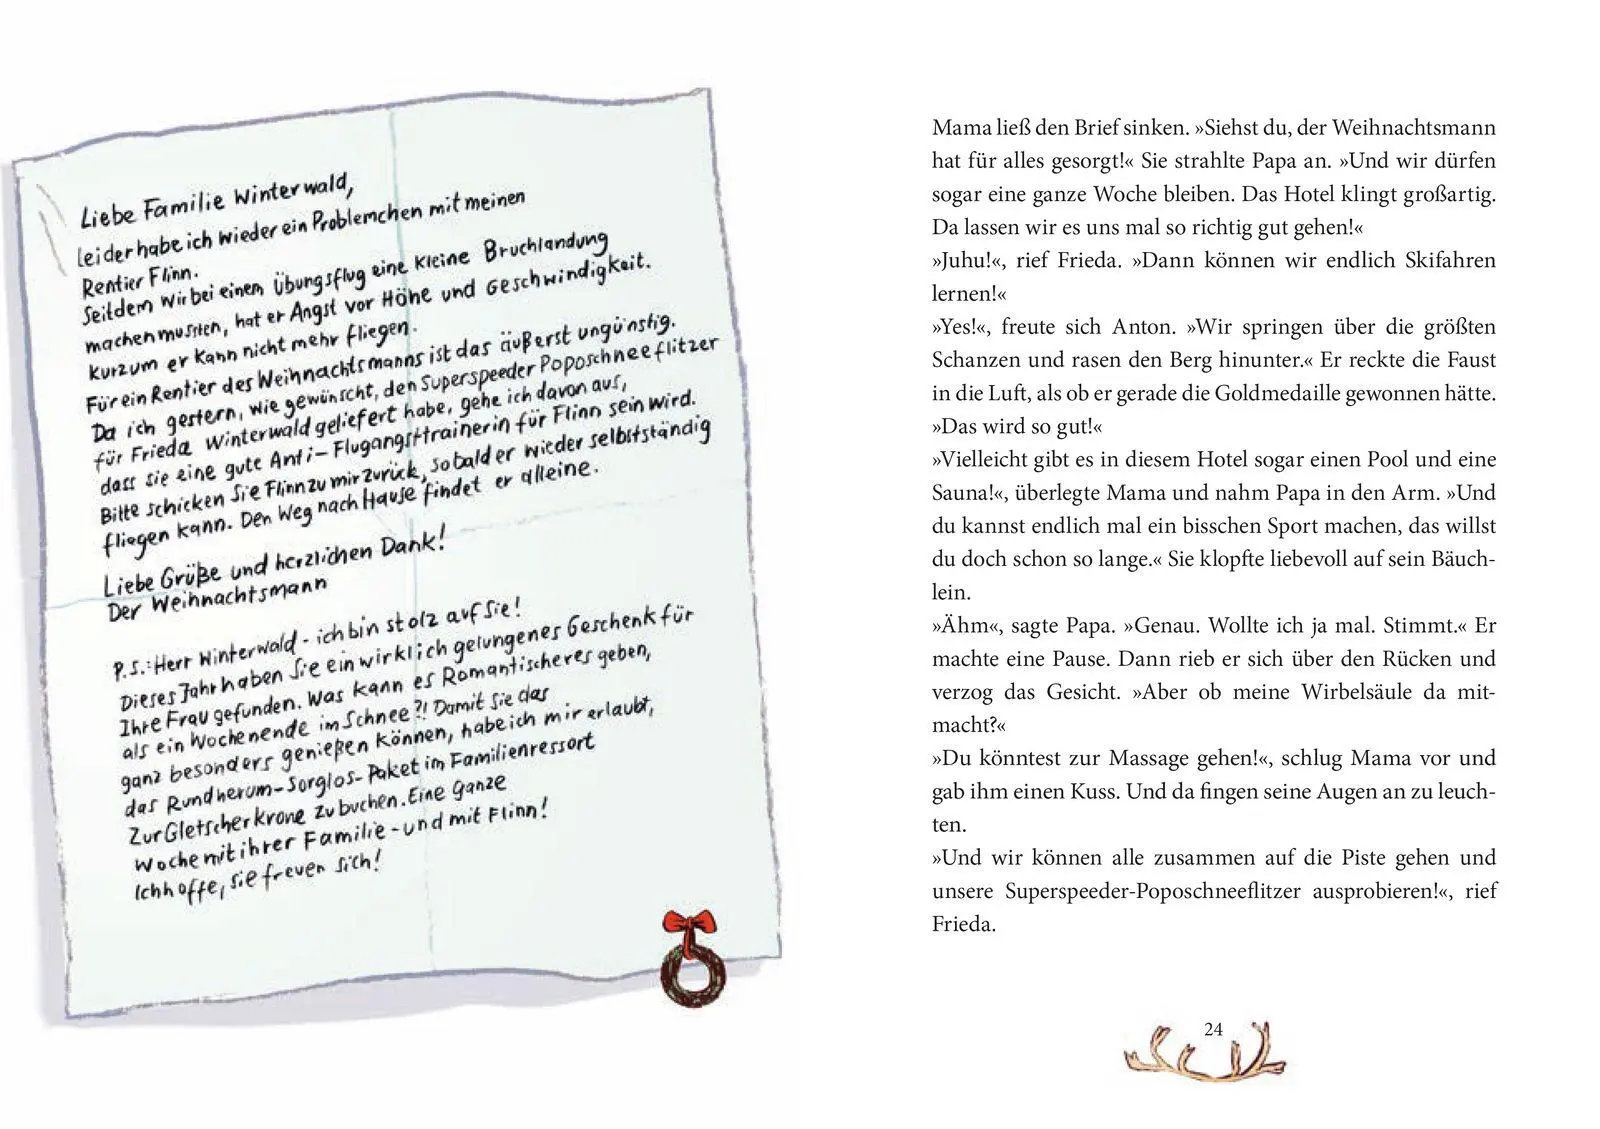 Liebe Familie Winterwald,
leider habe ich wieder ein Problemchen mit meinen
Rentier Flinn.
Seitdem wir bei einem Übungsflug eine kleine Bruchlandung
machen mussten, hat er Angst vor Höhe und Geschwindigkeit.
Kurzum er kann nicht mehr fliegen.
Für ein Rentier des Weihnachtsmanns ist das äußerst ungünstig.
Da ich gestern, wie gewünscht, den Superspeeder Poposchneeflitzer
für Frieda Winterwald geliefert habe, gehe ich davon aus,
dass sie eine gute Anti-Flugangsttrainerin für Flinn sein wird.
Bitte schicken Sie Flinn zu mir zurück, sobald er wieder selbstständig
fliegen kann. Den Weg nach Hause findet er alleine.
Liebe Grüße und herzlichen Dank!
Der Weihnachtsmann
P.S.: Herr Winterwald - ich bin stolz auf Sie!
Dieses Jahr haben Sie ein wirklich gelungenes Geschenk für
Ihre Frau gefunden. Was kann es Romantischeres geben,
als ein Wochenende im Schnee?! Damit Sie das
ganz besonders genießen können, habe ich mir erlaubt,
das Rundherum-Sorglos-Paket im Familienressort
Zur Gletscherkrone zu buchen. Eine ganze
Woche mit ihrer Familie - und mit Flinn!
Ich hoffe, sie freuen sich!
Mama ließ den Brief sinken. »Siehst du, der Weihnachtsmann
hat für alles gesorgt!« Sie strahlte Papa an. »Und wir dürfen
sogar eine ganze Woche bleiben. Das Hotel klingt großartig.
Da lassen wir es uns mal so richtig gut gehen!«
»Juhu!«, rief Frieda. »Dann können wir endlich Skifahren
lernen!«
»Yes!«, freute sich Anton. »Wir springen über die größten
Schanzen und rasen den Berg hinunter.« Er reckte die Faust
in die Luft, als ob er gerade die Goldmedaille gewonnen hätte.
»Das wird so gut!«
»Vielleicht gibt es in diesem Hotel sogar einen Pool und eine
Sauna!«, überlegte Mama und nahm Papa in den Arm. »Und
du kannst endlich mal ein bisschen Sport machen, das willst
du doch schon so lange.« Sie klopfte liebevoll auf sein Bäuch-
lein.
»Ähm«, sagte Papa. »Genau. Wollte ich ja mal. Stimmt.« Er
machte eine Pause. Dann rieb er sich über den Rücken und
verzog das Gesicht. »Aber ob meine Wirbelsäule da mit-
macht?«
»Du könntest zur Massage gehen!«, schlug Mama vor und
gab ihm einen Kuss. Und da fingen seine Augen an zu leuch-
ten.
»Und wir können alle zusammen auf die Piste gehen und
unsere Superspeeder-Poposchneeflitzer ausprobieren!«, rief
Frieda.
24